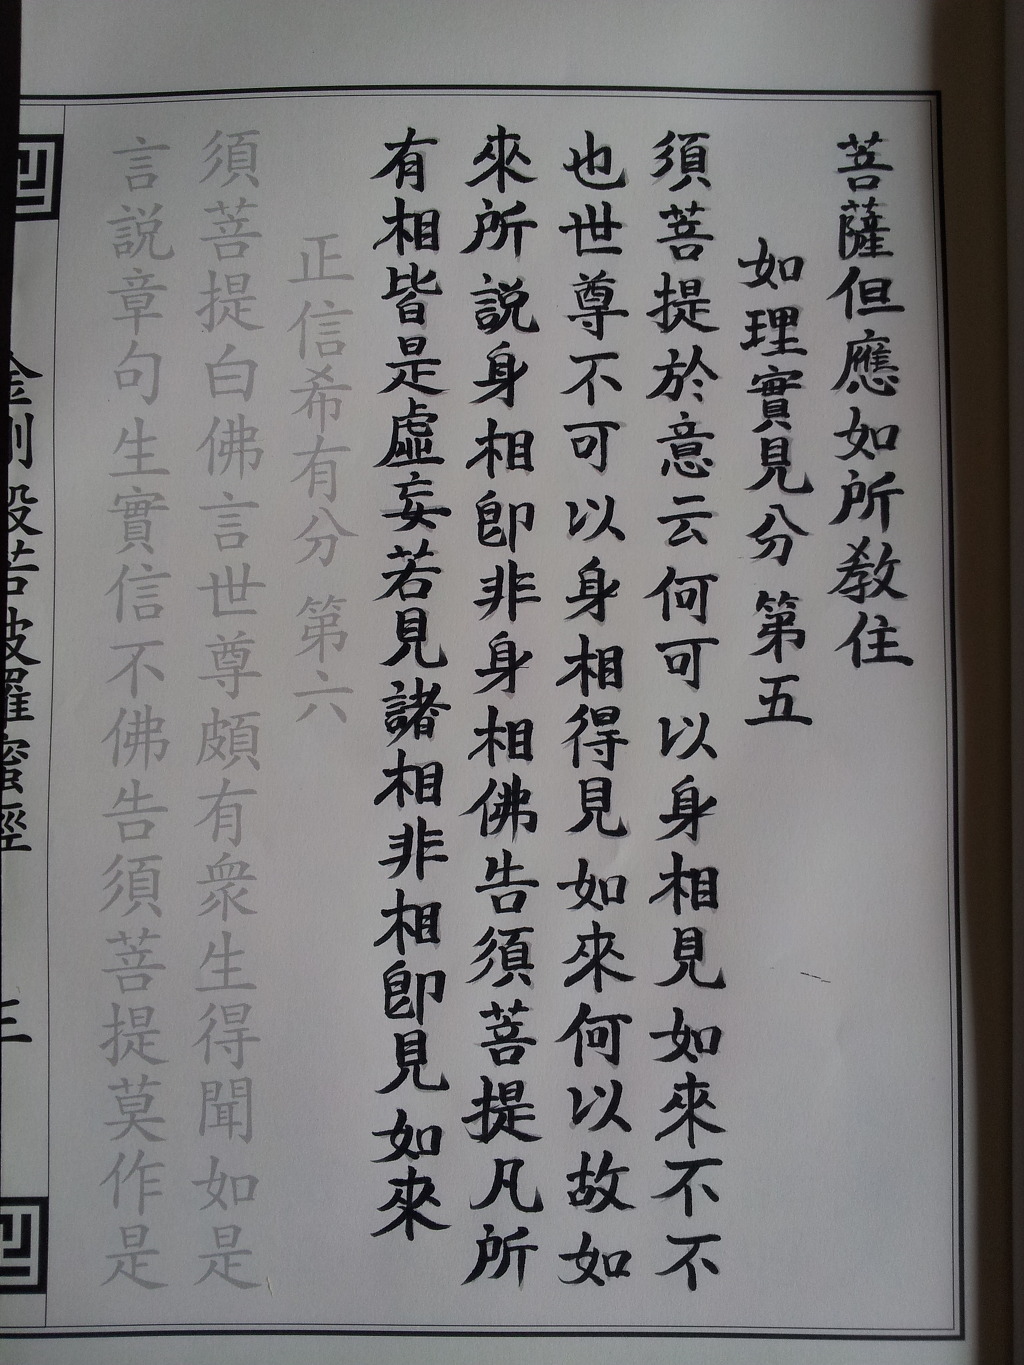 菩薩但應如所教住
如理實見分 第五
須菩提於意云何可以身相見如來不不
也世尊不可以身相得見如來何以故如
來所説身相即非身相佛告須菩提凡所
有相皆是虛妄若見諸相非相即見如來
正信希有分 第六
須菩提白佛言世尊頗有衆生得聞如是
言説章句生實信不佛告須菩提莫作是
金剛般若波羅蜜經 三